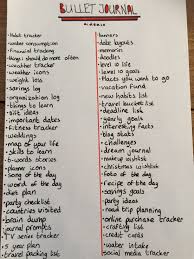 BULLET JOURNAL
#ideeën
·Habit tracker
·water consumption
·financial tracking
·things I should do more often
·weather tracker
·weather icons
·weight loss
·savings log
·organization log
·things to learn
·gift ideas
·important dates
·fitness tracker
·weddings
·map of your life
·skills to learn
·t-words stories
·planner icons
·song of the day
·word of the day
·diet plan
·party checklist
·countries visited
·brain dump
·journal prompts
·TV series tracker
·5 year plan
·travel packing list
·banners
·date layouts
·memories
·doodles
·level 10 life
·level 10 goals
·Places you want to go
·vacation fund
·new habits list
·travel bucket list
·deadline
·yearly goals
·interesting facts
·blog stats
·challenges
·dream journal
·makeup wishlist
·christmas wishlist
·foto of the day
·recipe of the day
·savings goals
·party ideas
·road trip planning
·online purchase tracker
·crafting list
·credit cards
·water intake
·social media tracker